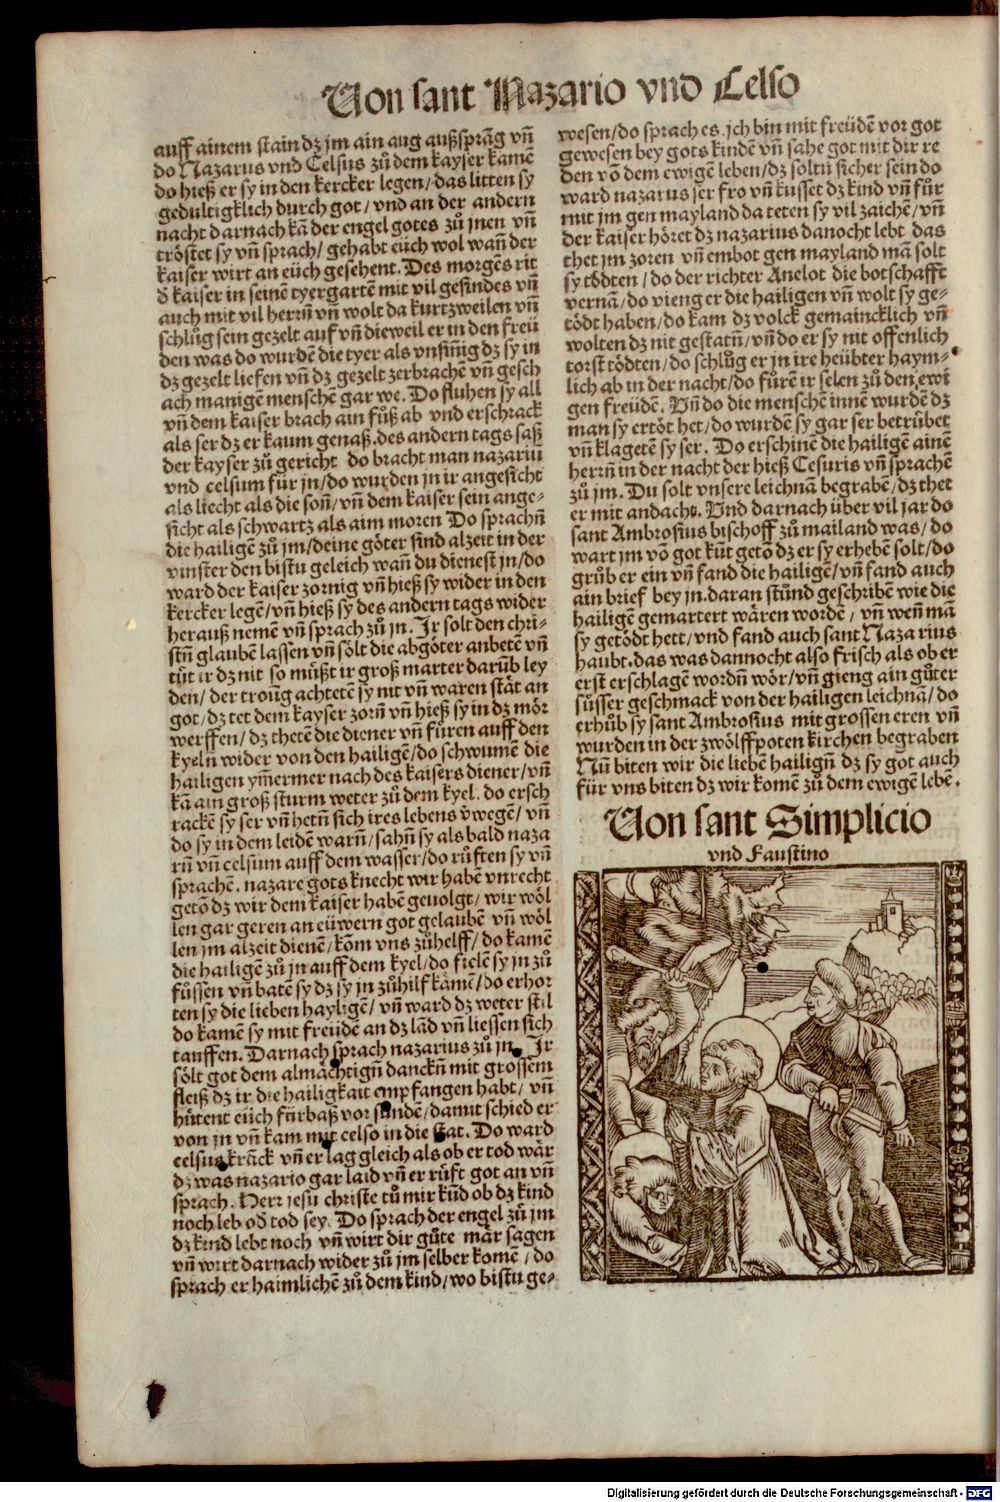 Von sant Nazario vnd Celso
auff ainem stain dz jm ain aug außsprāg vñ
do Nazarus vnd Celsus zů dem kayser kamē
do hieß er sy in den kercker legen/das litten sy
gedultigklich durch got/vnd an der andern
nacht darnach kā der engel gotes zů jnen vñ
tröstet sy vñ sprach/gehabt eüch wol wañ der
kaiser wirt an eüch geschent. Des morgēs rit
d̕ kaiser in seinē tyergartē mit vil gesindes vñ
auch mit vil herrñ vñ wolt da kurtzweilen vñ
schlůg sein gezelt auf vñ dieweil er in den freü
den was do wurdē die tyer als vnsiñig dz sy in
dz gezelt liefen vñ dz gezelt zerbrachē vñ gesch
ach manigē menschē gar we. Do fluhen sy all
vñ dem kaiser brach ain fůß ab vnd erschrack
als ser dz er kaum genaß.des andern tags saß
der kayser zů gericht do bracht man nazariū
vnd celsum für jn/do wurden jn ir angesicht
als liecht als die soñ/vñ dem kaiser sein ange-
sicht als schwartz als aim moren Do sprachñ
die hailigē zů jm/deine göter sind alzeit in der
vinster den bistu geleich wañ du dienest jn/do
ward der kaiser zornig vñ hieß sy wider in den
kercker legē/vñ hieß sy des andern tags wider
herauß nemē vñ sprach zů jn. Jr solt den chri-
stñ glaubē lassen vñ sölt die abgöter anbetē vñ
tüt ir dz nit so müßt ir groß marter darüb ley
den/der troūg achtetē sy nit vñ waren stät an
got/dz tet dem kayser zorñ vñ hieß sy in dz mör
werffen/dz thetē die diener vñ füren auff den
kyelñ wider von den hailigē/do schwumē die
hailigen ym̄ermer nach des kaisers diener/vñ
kā ain groß sturm weter zů dem kyel.do ersch
rackē sy ser vñ hetñ sich ires lebens v̕wegē/vñ
do sy in dem leidē warñ/sahñ sy als bald naza
rñ vñ celsum auff dem wasser/do růften sy vñ
sprachē.nazare gots knecht wir habē vnrecht
getō dz wir dem kaiser habē geuolgt/wir wöl
len gar geren an eüwern got gelaubē vñ wöl
len jm alzeit dienē/kōm vns zůhelff/do kamē
die hailigē zů jn auff dem kyel/do fielē sy jn zů
füssen vñ batē sy dz sy jn zůhilf kämē/do erhor
ten sy die lieben hayligē/vñ ward dz weter stil
do kamē sy mit freüdē an dz lād vñ liessen sich
tauffen. Darnach sprach nazarius zů jn. Jr
sölt got dem almächtigñ danckñ mit grossem
fleiß dz ir die hailigkait empfangen habt/vñ
hütent eüch fürbaß vor sündē/damit schied er
von jn vñ kam mit celso in die stat. Do ward
celsus krāck vñ er lag gleich als ob er tod wär
dz was nazario gar laid vñ er růft got an vñ
sprach. Herr jesu christe tů mir kūd ob dz kind
noch leb od̕ tod sey. Do sprach der engel zů jm
dz kind lebt noch vñ wirt dir gůte mär sagen
vñ wirt darnach wider zů jm selber komē/do
sprach er haimlichē zů dem kind/wo bistu ge-
wesen/do sprach es.jch bin mit freüdē vor got
gewesen bey gots kindē vñ sahe got mit dir re
den vō dem ewigē leben/dz soltu sicher sein do
ward nazarus ser fro vñ kusset dz kind vñ für
mit jm gen mayland da teten sy vil zaichē/vñ
der kaiser höret dz nazarius danocht lebt das
thet jm zoren vñ embot gen mayland mā solt
sy tödten/do der richter Anelot die botschafft
vernā/do vieng er die hailigen vñ wolt sy ge-
tödt haben/do kam dz volck gemaincklich vñ
wolten dz nit gestatñ/vñ do er sy nit offenlich
torst tödten/do schlůg er jn ire heübter haym-
lich ab in der nacht/do fürē ir selen zů den ewi
gen freüden. Vñ do die menschē innē wurdē dz
man sy ertöt het/do wurdē sy gar ser betrübet
vñ klagetē sy ser. Do erschinē die hailigē ainē
herrñ in der nacht der hieß Cesuris vñ sprachē
zů jm. Du solt vnsere leichnā begrabē/dz thet
er mit andacht. Vnd darnach über vil jar do
sant Ambrosius bischoff zů mailand was/do
wart jm vō got kūt getō dz er sy erhebē solt/do
grůb er ein vñ fand die hailigē/vñ fand auch
ain brief bey jn.daran stůnd geschribē wie die
hailigē gemartert wären wordē/vñ weñ mā
sy getödt hett/vnd fand auch sant Naza rius
haubt.das was dannocht also frisch als ob er
erst erschlagē wordñ wör/vñ gieng ain gůter
süsser geschmack von der hailigen leichnā/do
erhůb sy sant Ambrosius mit grossen eren vñ
wurden in der zwölffpoten kirchen begraben
Nū biten wir die liebē hailigñ dz sy got auch
für vns biten dz wir komē zů dem ewigē lebē.
Von sant Simplicio
vnd Faustino
Digitalisierung gefördert durch die Deutsche Forschungsgemeinschaft - DFG